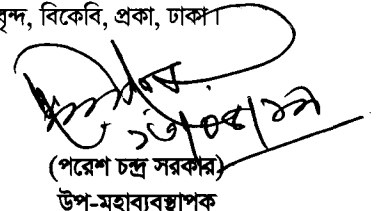 বৃন্দ, বিকেবি, প্রকা, ঢাকা।
(পরেশ চন্দ্র সরকার)
উপ-মহাব্যবস্থাপক